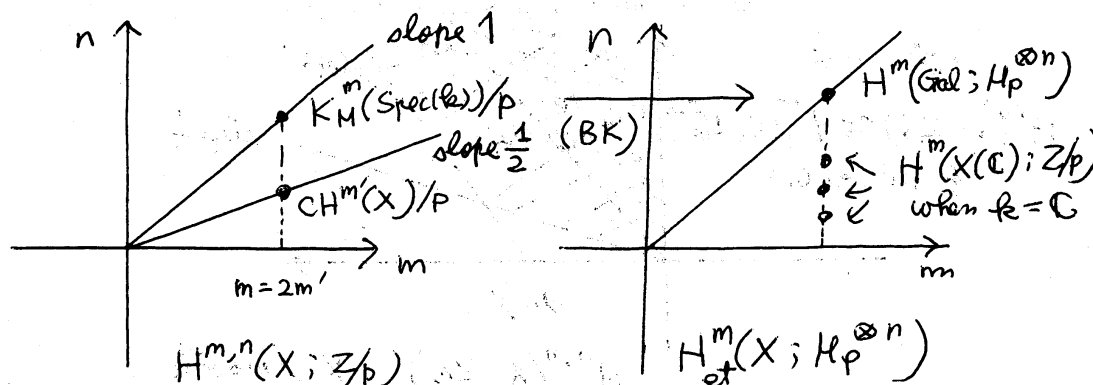 n
slope 1
K_M^m(Spec(k))/p
slope 1/2
CH^{m'}(X)/p
m
m=2m'
H^{m,n}(X; Z/p)
(BK)
n
H^m(Gal; μ_p^{⊗n})
H^m(X(ℂ); Z/p)
when k=ℂ
m
H_{et}^m(X; μ_p^{⊗n})